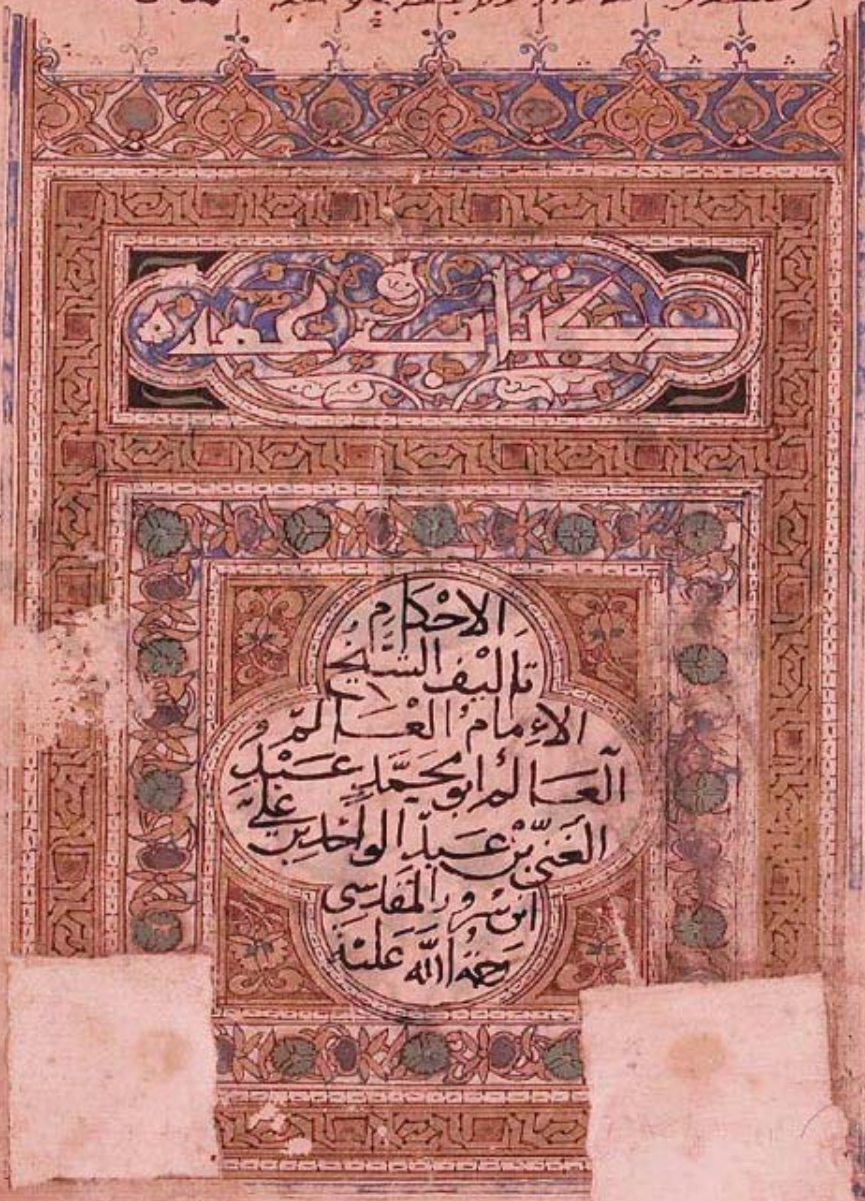 كتاب عمدة
الاحكام
تاليف الشيخ
الإمام العالم
العالم ابو محمد عبد
الغني بن عبد الواحد بن علي
ابن سرور المقدسي
رحمة الله عليه